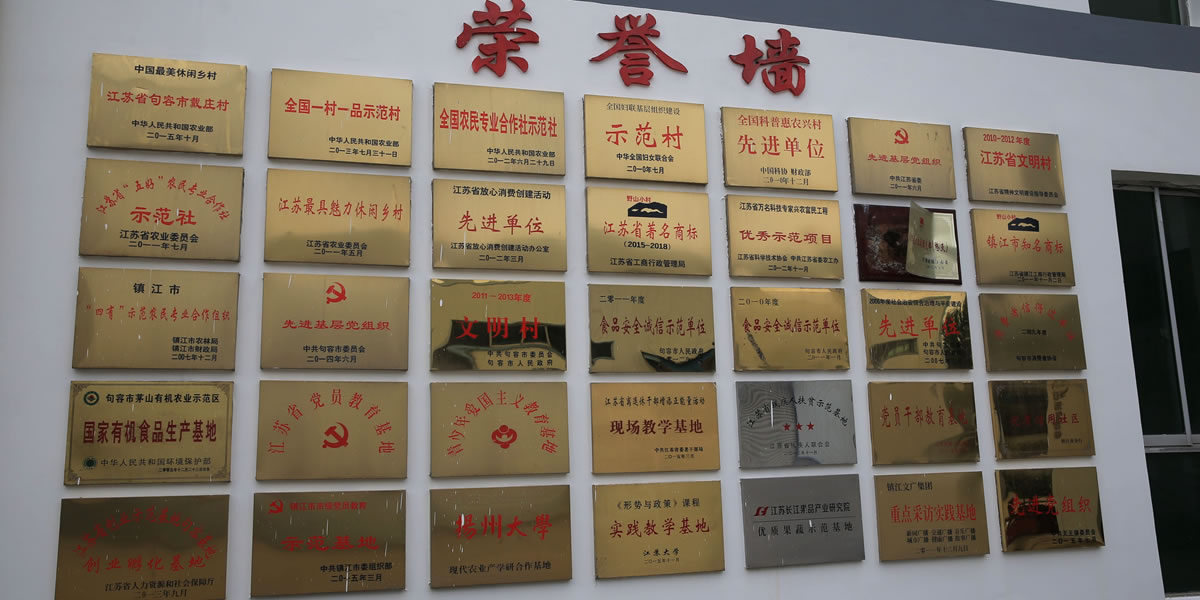 荣誉墙
中国最美休闲乡村
江苏省句容市戴庄村
中华人民共和国农业部
二〇一五年十月
全国一村一品示范村
中华人民共和国农业部
二〇一三年七月三十一日
全国农民专业合作社示范社
中华人民共和国农业部
二〇一二年六月二十九日
全国妇联基层组织建设
示范村
中华全国妇女联合会
二〇一〇年七月
全国科普惠农兴村
先进单位
中国科协 财政部
二〇一〇年十二月
先进基层党组织
中共江苏省委
二〇一一年六月
2010-2012年度
江苏省文明村
江苏省精神文明建设指导委员会
江苏省“五好”农民专业合作社
示范社
江苏省农业委员会
二〇一一年七月
江苏最具魅力休闲乡村
江苏省农业委员会
二〇一一年五月
江苏省放心消费创建活动
先进单位
江苏省放心消费创建活动办公室
二〇一二年三月
野山小村
江苏省著名商标
(2015-2018)
江苏省工商行政管理局
江苏省万名科技专家兴农富民工程
优秀示范项目
江苏省科学技术协会 中共江苏省委农工办
二〇一二年十一月
野山小村
镇江市知名商标
江苏省镇江工商行政管理局
镇江市
“四有”示范农民专业合作组织
镇江市农林局
镇江市财政局
二〇〇七年十二月
先进基层党组织
中共句容市委员会
二〇一四年六月
2011-2013年度
文明村
中共句容市委员会
句容市人民政府
二〇一一年度
食品安全诚信示范单位
句容市人民政府
二〇一〇年度
食品安全诚信示范单位
句容市人民政府
先进单位
句容市消费者协会
句容市茅山有机农业示范区
国家有机食品生产基地
中华人民共和国环境保护部
江苏省党员教育基地
青少年爱国主义教育基地
江苏省离退休干部增添正能量活动
现场教学基地
中共江苏省委老干部局
江苏省残疾人扶贫示范基地
江苏省残疾人联合会
党员干部教育基地
创业孵化基地
江苏省人力资源和社会保障厅
二〇一三年九月
示范基地
中共镇江市委组织部
二〇一五年三月
扬州大學
现代农业产学研合作基地
《形势与政策》课程
实践教学基地
江苏大学
二〇一五年十一月
江苏长江果品产业研究院
优质果蔬示范基地
镇江文广集团
重点采访实践基地
二〇一一年十二月九日
先进党组织